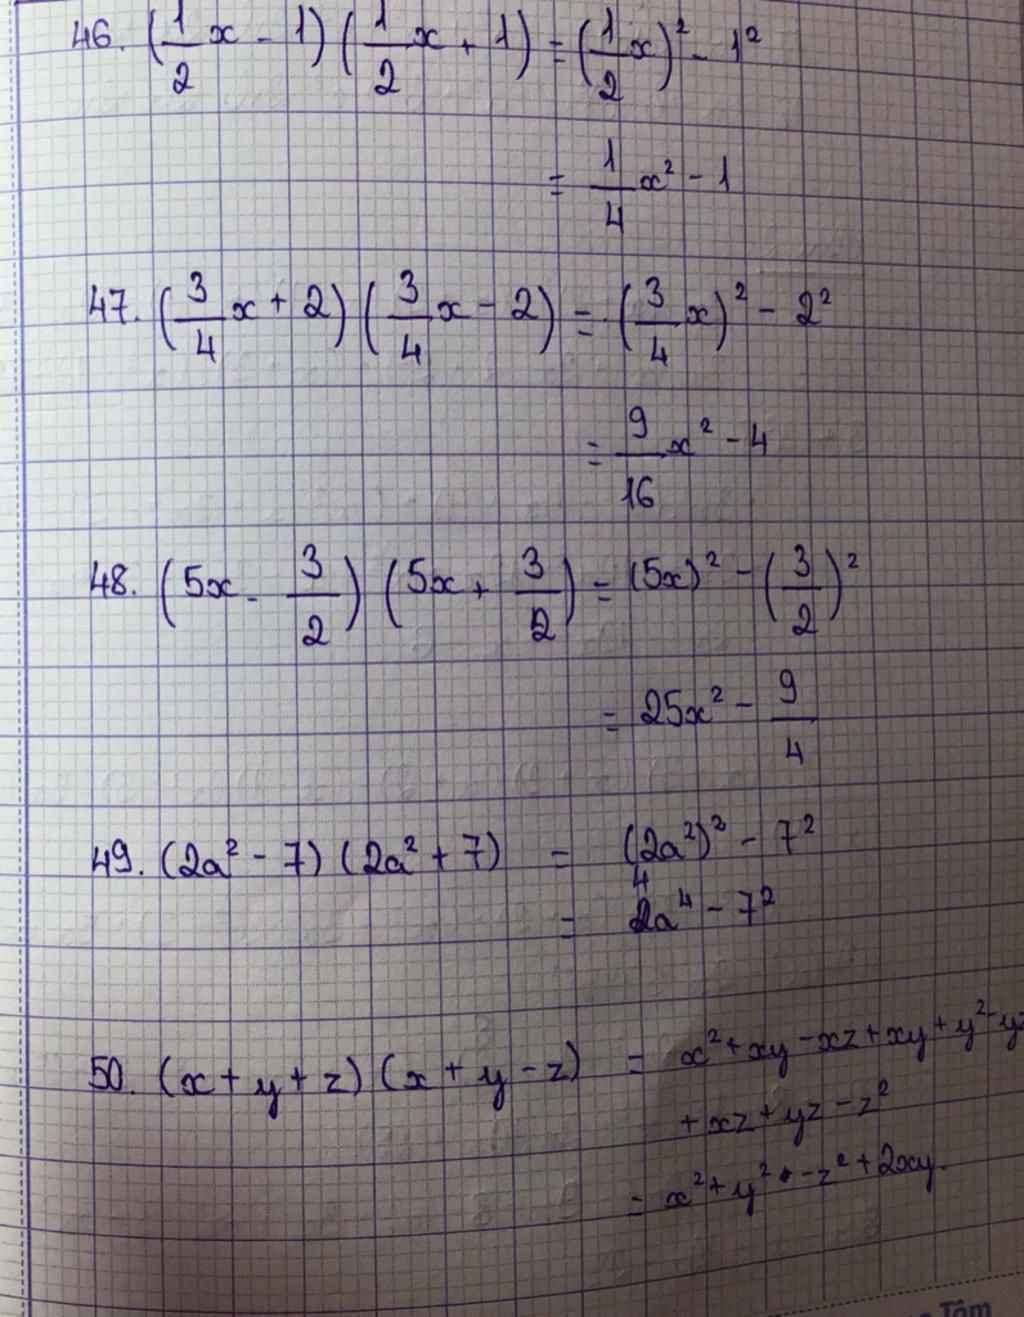 46. (1/2 x - 1) (1/2 x + 1) = (1/2 x)² - 1²
= 1/4 x² - 1
47. (3/4 x + 2) (3/4 x - 2) = (3/4 x)² - 2²
= 9/16 x² - 4
48. (5x - 3/2) (5x + 3/2) = (5x)² - (3/2)²
= 25x² - 9/4
49. (2a² - 7) (2a² + 7) = (2a²)² - 7²
= 4a⁴ - 7²
50. (x + y + z) (x + y - z) = x² + xy - xz + xy + y² - yz
+ xz + yz - z²
= x² + y² - z² + 2xy.
Tâm